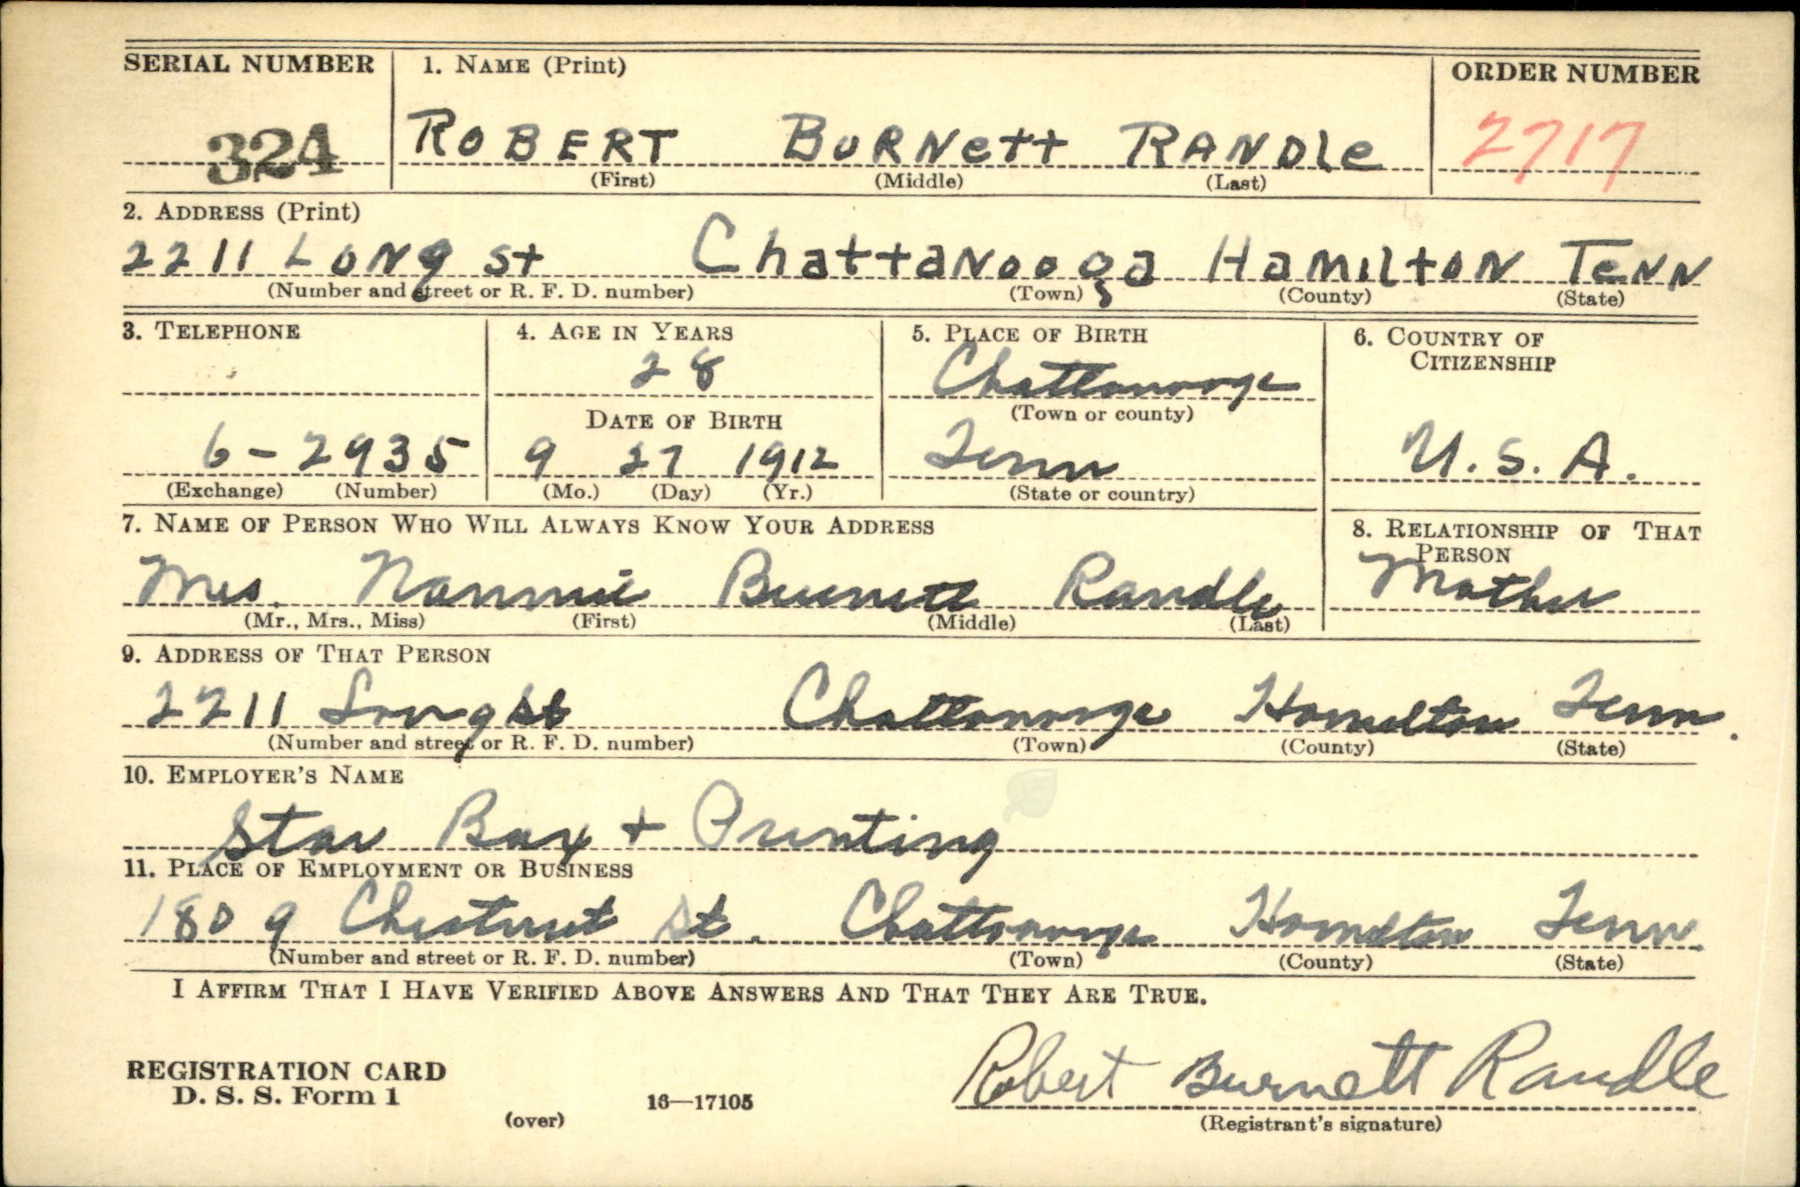 SERIAL NUMBER 1. NAME (Print) ORDER NUMBER
324 ROBERT BURNett RANDle 2717
(First) (Middle) (Last)
2. ADDRESS (Print)
2211 LONg St Chattanooga Hamilton Tenn
(Number and street or R. F. D. number) (Town) (County) (State)
3. TELEPHONE 4. AGE IN YEARS 5. PLACE OF BIRTH 6. COUNTRY OF CITIZENSHIP
28 Chattanooga
DATE OF BIRTH (Town or county)
6-2935 9 27 1912 Tenn U.S.A.
(Exchange) (Number) (Mo.) (Day) (Yr.) (State or country)
7. NAME OF PERSON WHO WILL ALWAYS KNOW YOUR ADDRESS 8. RELATIONSHIP OF THAT PERSON
Mrs. Nannie Burnett Randle Mother
(Mr., Mrs., Miss) (First) (Middle) (Last)
9. ADDRESS OF THAT PERSON
2211 Long St Chattanooga Hamilton Tenn.
(Number and street or R. F. D. number) (Town) (County) (State)
10. EMPLOYER'S NAME
Star Box + Printing
11. PLACE OF EMPLOYMENT OR BUSINESS
1809 Chestnut St. Chattanooga Hamilton Tenn.
(Number and street or R. F. D. number) (Town) (County) (State)
I AFFIRM THAT I HAVE VERIFIED ABOVE ANSWERS AND THAT THEY ARE TRUE.
REGISTRATION CARD
D. S. S. Form 1 16—17105 Robert Burnett Randle
(over) (Registrant's signature)